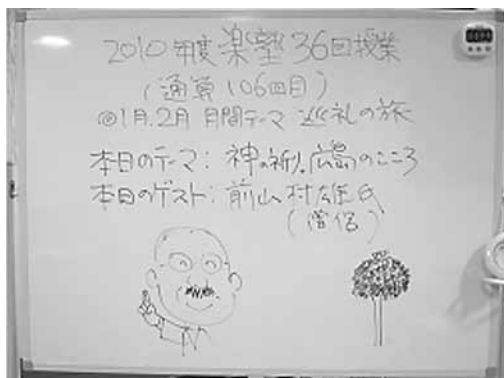 2010年度 楽塾 36回授業
(通算106回目)
@1月.2月 月間テーマ 巡礼の旅
本日のテーマ: 神の祈り。広島のこころ
本日のゲスト: 前山村雄氏
(僧侶)